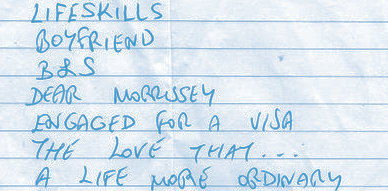 LIFESKILLS
BOYFRIEND
B&S
DEAR MORRISSEY
ENGAGED FOR A VISA
THE LOVE THAT...
A LIFE MORE ORDINARY